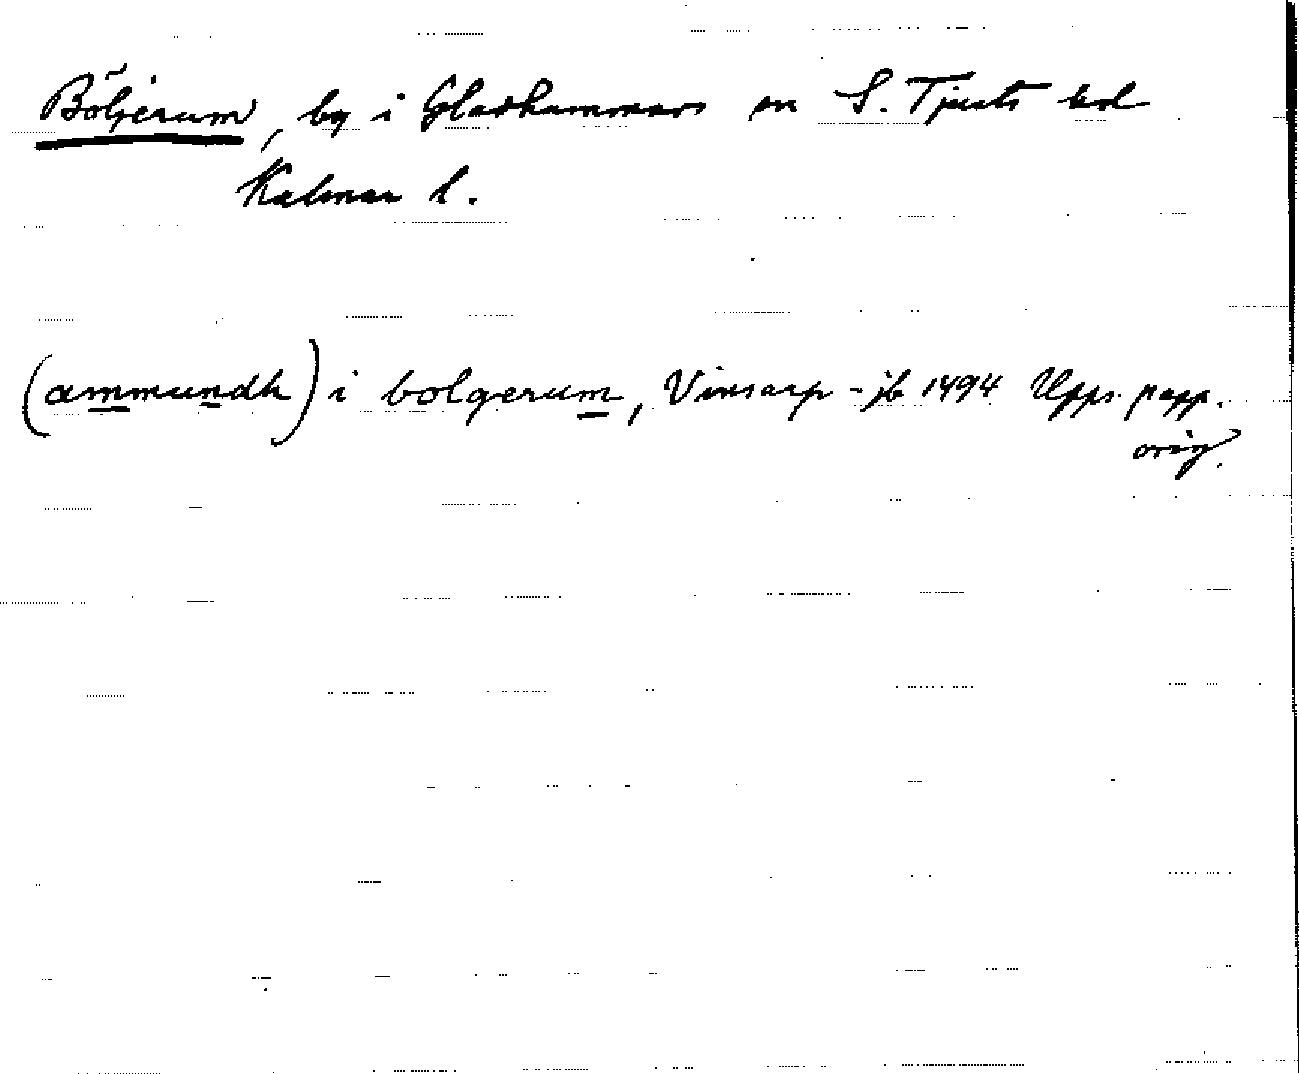 Böljerum, by i Gladhammars sn S. Tjusts hd
Kalmar l.
(ammundh) i bolgerum, Vinsarp-jb 1494 Upps. papp.
orig.